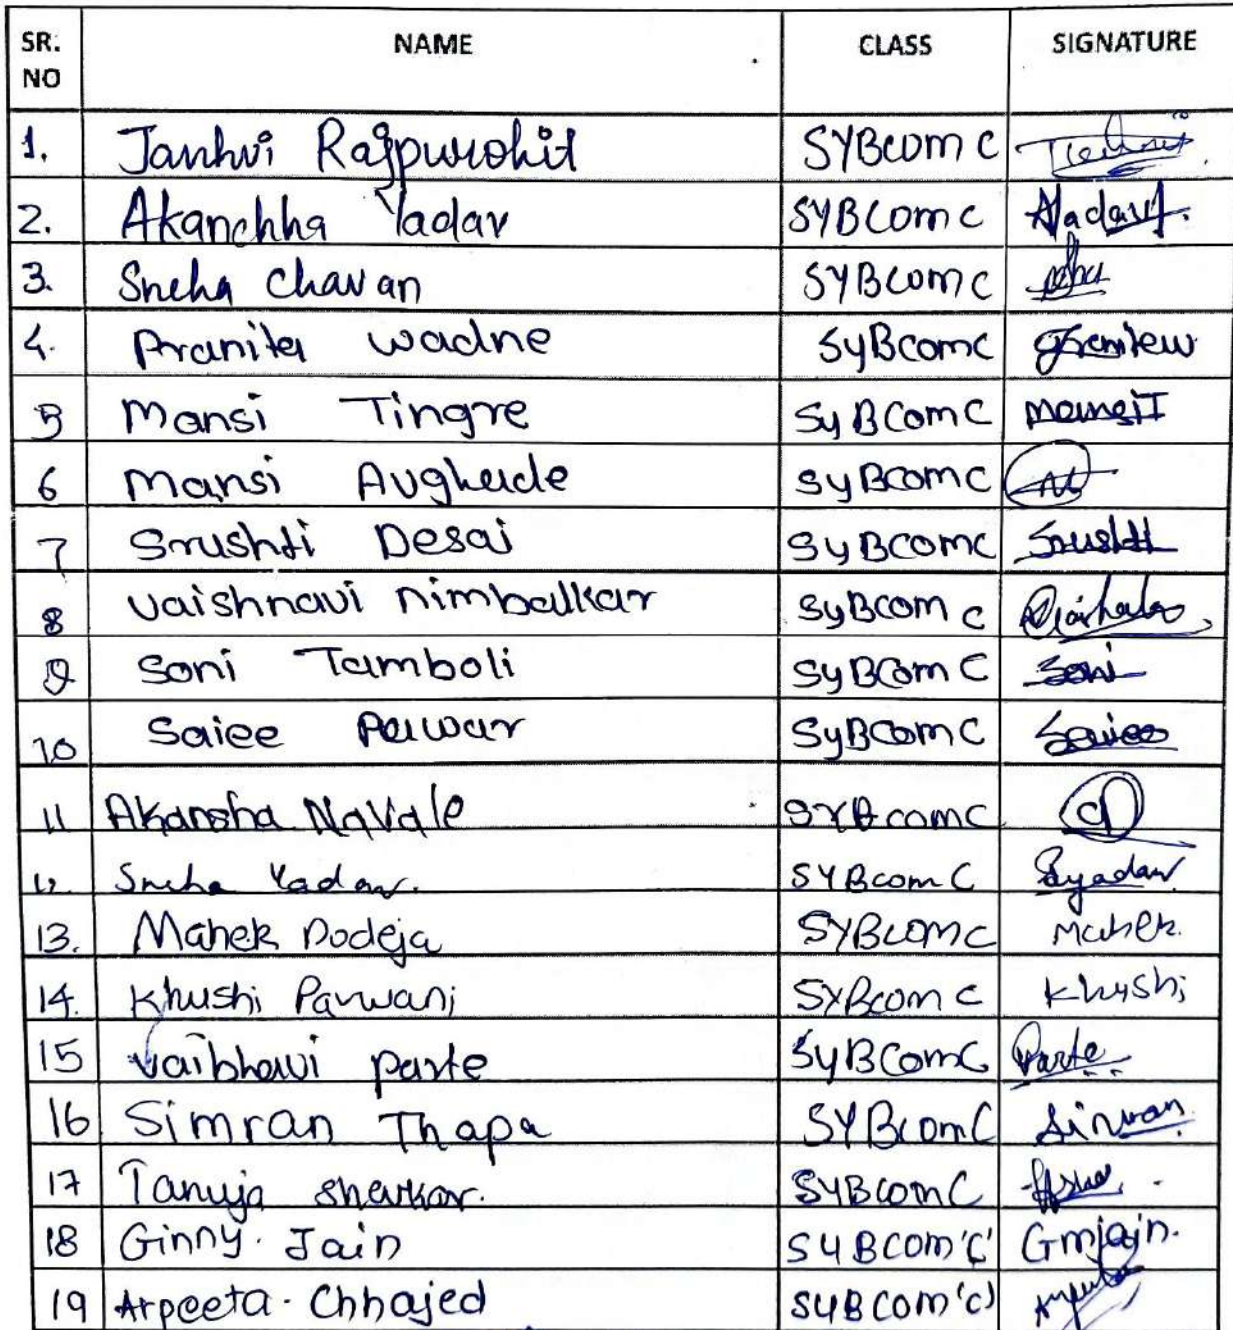 SR. NO NAME CLASS SIGNATURE
1. Janhvi Rajpurohit SYBcom C
2. Akanchha Yadav SYBcom C Ayadav
3. Sneha Chavan SYBcom C
4. Pranita wadne SyBcom C
5 Mansi Tingre SyBCom C MansiT
6 Mansi Aughade SyBcom C
7 Srushti Desai SyBcom C Srushti
8 Vaishnavi nimbalkar SyBcom C
9 Soni Tamboli SyBcom C Soni
10 Saiee Pawar SyBcom C Saiee
11 Akansha Navale SYBcom C
12. Sneha Yadav. SYBcom C Syadav
13. Mahek Dodeja SYBcom C Mahek.
14. Khushi Parwani SYBcom C Khushi
15 Vaibhavi parte SyBCom C Parte
16 Simran Thapa SYBcom C Simran
17 Tanuja shevkar. SYBcom C
18 Ginny. Jain SYBCom 'C' Gmjain.
19 Arpeeta. Chhajed SYBCom 'C)